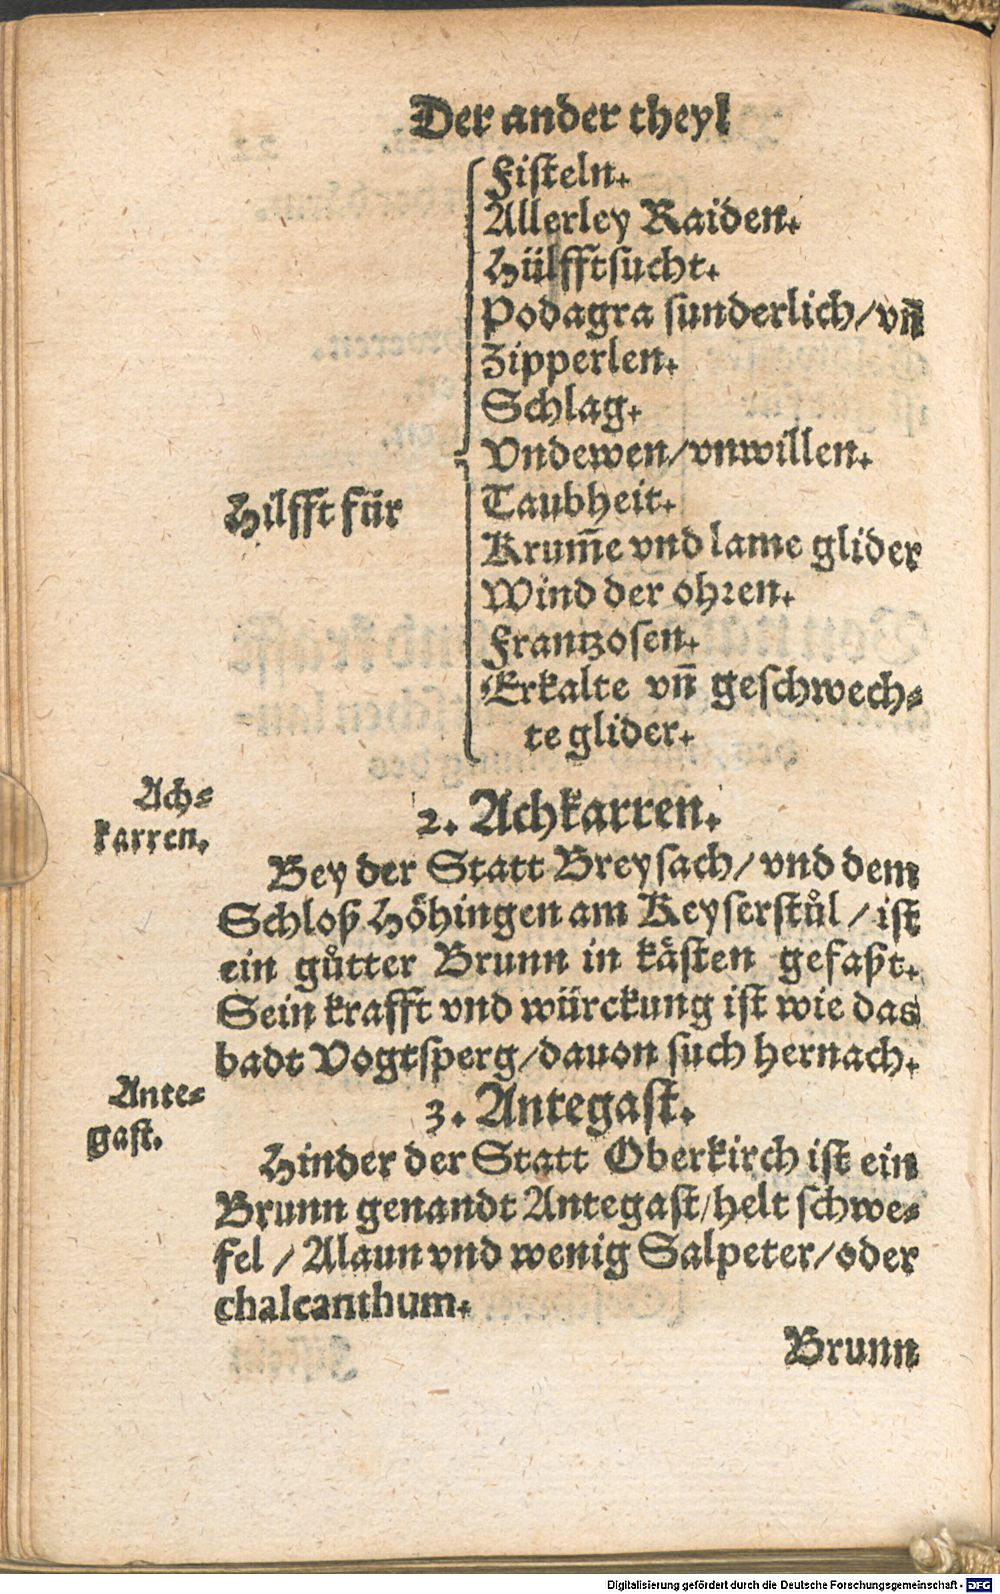 Der ander theyl
Fisteln.
Allerley Raiden.
Hülfftsucht.
Podagra sunderlich/vn̄
Zipperlen.
Schlag.
Vndewen/vnwillen.
Hilfft für
Taubheit.
Krum̄e vnd lame glider
Wind der ohren.
Frantzosen.
Erkalte vn̄ geschwech-
te glider.
Ach-
karren.
2. Achkarren.
Bey der Statt Breysach/ vnd dem
Schloß Höhingen am Keyserstůl / ist
ein gůtter Brunn in kåsten gefaßt.
Sein krafft vnd würckung ist wie das
badt Vogtsperg/dauon such hernach.
Ante-
gast.
3. Antegast.
Hinder der Statt Oberkirch ist ein
Brunn genandt Antegast/helt schwe-
fel / Alaun vnd wenig Salpeter/oder
chalcanthum.
Brunn
Digitalisierung gefördert durch die Deutsche Forschungsgemeinschaft - DFG